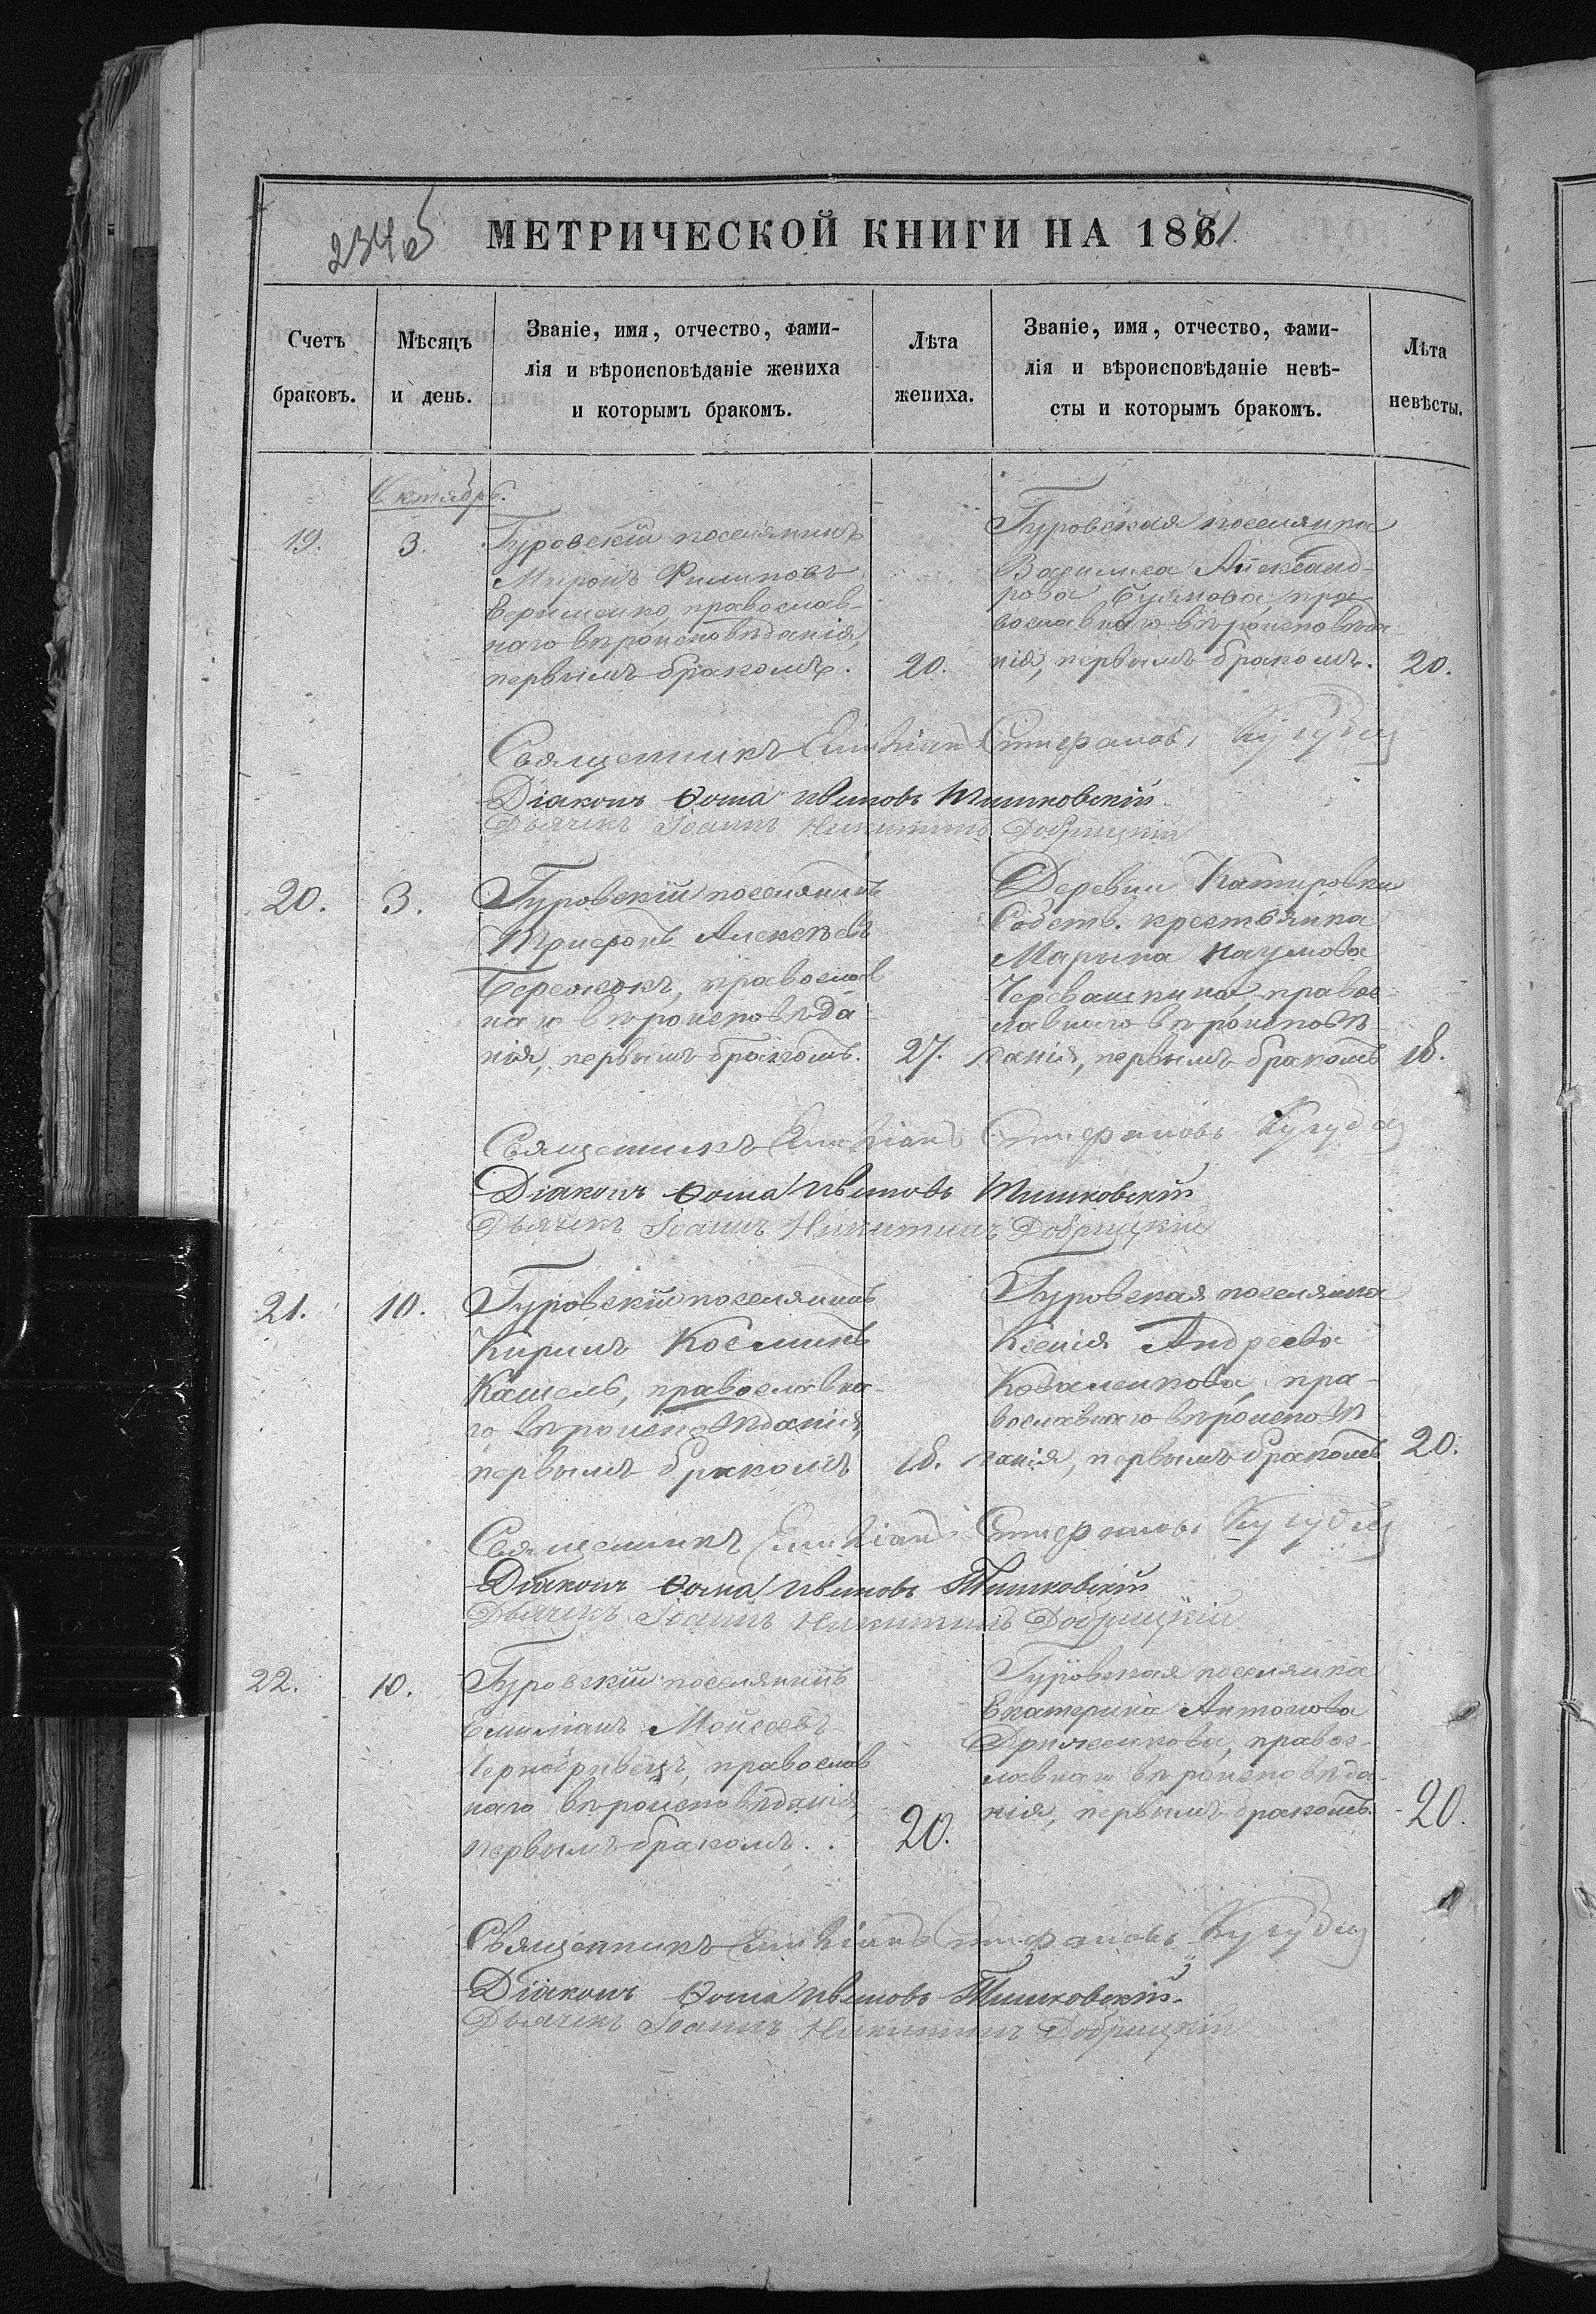 234об
МЕТРИЧЕСКОЙ КНИГИ НА 1871.
Счетъ браковъ.
Мѣсяцъ и день.
Званіе, имя, отчество, фами-
лія и вѣроисповѣданіе жениха
и которымъ бракомъ.
Лѣта жениха.
Званіе, имя, отчество, фами-
лія и вѣроисповѣданіе невѣ-
сты и которымъ бракомъ.
Лѣта невѣсты.
Октябрь.
19.
3.
Гуровскій поселянинъ
Миронъ Филиповъ
православ-
наго вѣроисповѣданія,
первымъ бракомъ.
20.
Гуровская поселянка
Василиса Александ-
рова пра
вославнаго вѣроисповѣда
нія, первымъ бракомъ.
20.
Священникъ Емиліанъ Стефановъ
Діаконъ Ѳома Ивановъ Тишковскій
Дьячекъ Іоаннъ Никитинъ Добрицкій
20.
3.
Гуровскій поселянинъ
Алексѣевъ
Бережокъ, православ
наго вѣроисповѣда
нія, первымъ бракомъ.
27.
Деревни
Собств. крестьянка
Марына Наумова
правос-
лавнаго вѣроисповѣ
данія, первымъ бракомъ
18.
Священникъ Емиліанъ Стефановъ
Діаконъ Ѳома Ивановъ Тишковскій
Дьячекъ Іоаннъ Никитинъ Добрицкій
21.
10.
Гуровскій поселянинъ
Кирилъ Косминъ
Кашель, православна-
го вѣроисповѣданія,
первымъ бракомъ
18.
Гуровская поселянка
Ксенія Андреева
Коваленкова, пра-
вославнаго вѣроисповѣ
данія, первымъ бракомъ
20.
Священникъ Емиліанъ Стефановъ
Діаконъ Ѳома Ивановъ Тишковскій
Дьячекъ Іоаннъ Никитинъ Добрицкій
22.
10.
Гуровскій поселянинъ
Емиліанъ Моисеевъ
Чернобривецъ, православ
наго вѣроисповѣданія,
первымъ бракомъ.
20.
Гуровская поселянка
Екатерина Антонова
правос-
лавнаго вѣроисповѣда
нія, первымъ бракомъ.
20.
Священникъ Емиліанъ Стефановъ
Діаконъ Ѳома Ивановъ Тишковскій
Дьячекъ Іоаннъ Никитинъ Добрицкій